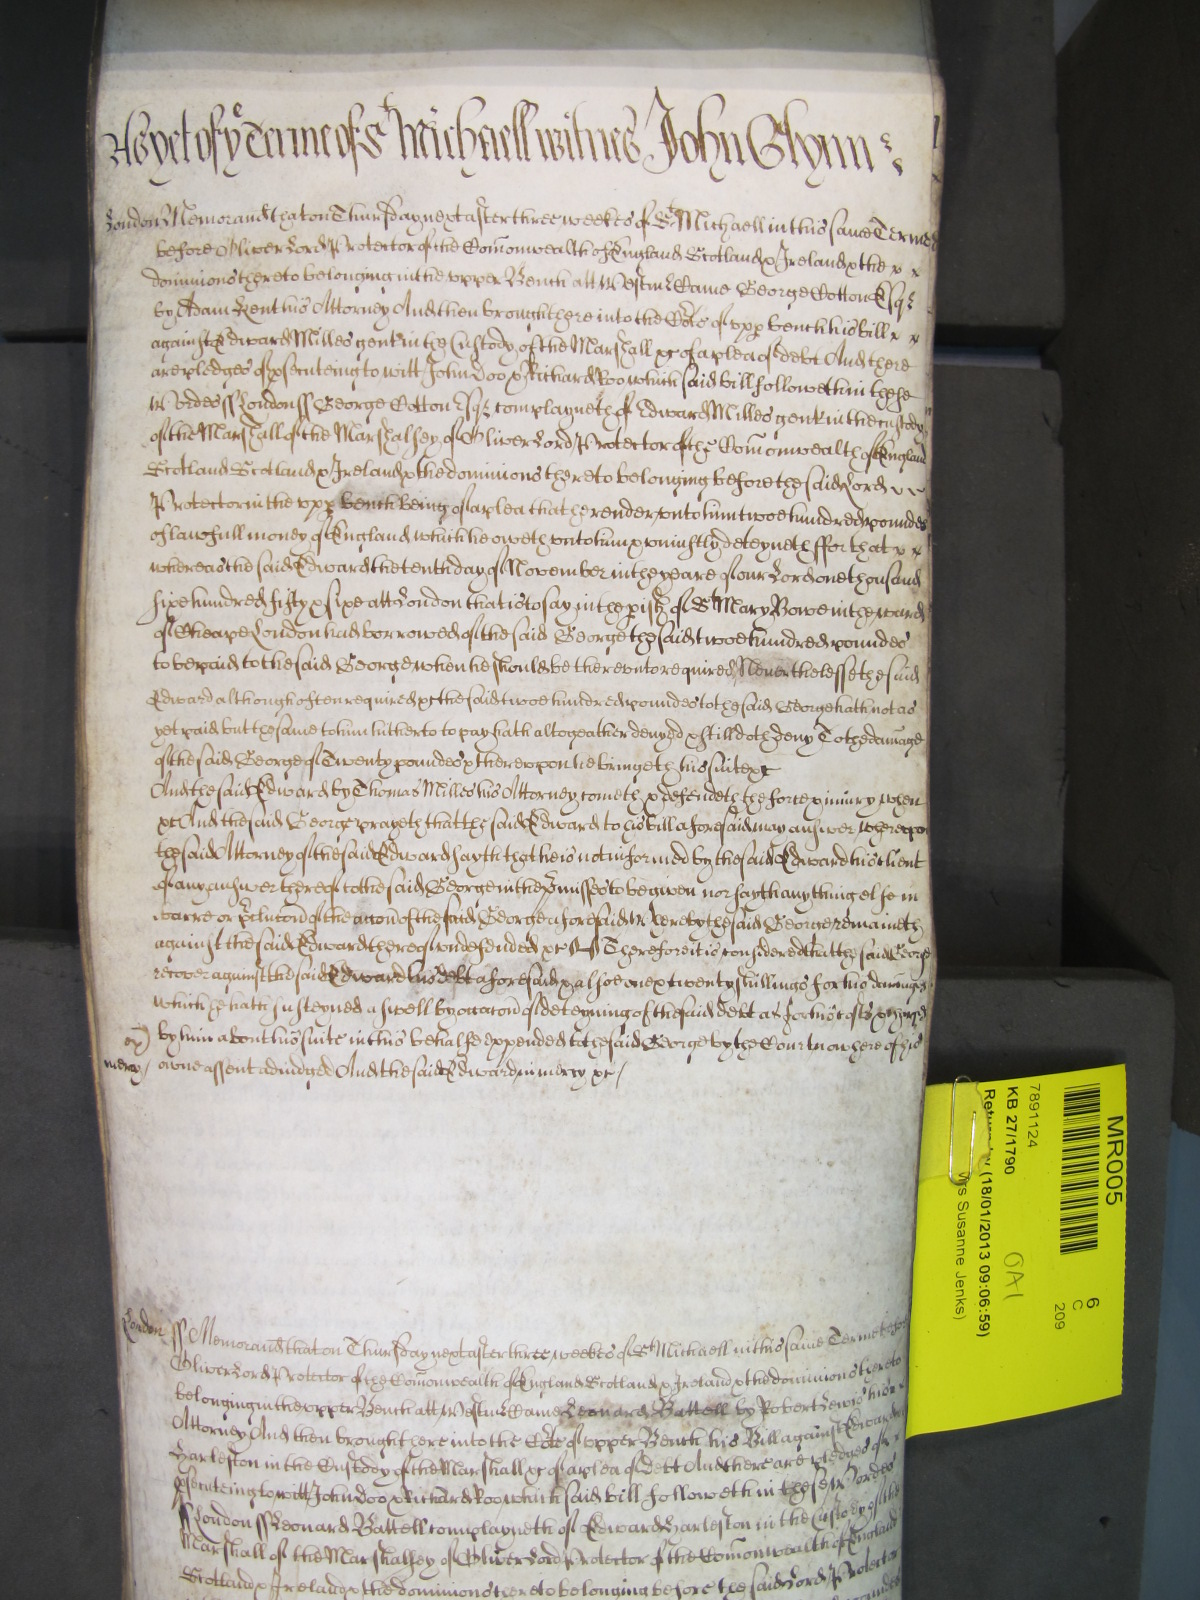 As yet of ye Terme of St Michaell witnes John Glynn
London Memorand that on Thursday next after three weekes of St Michaell in this same Terme
before Oliver Lord Protector of the Com̃onwealth of England Scotland & Ireland & the x x
dominions thereto belonging in the upper Bench att Westm̃ Came George Cotton Esqr
by Adam Kent his Attorney And then brought here into the Co͠rt of upp̱ bench his bill x x
against Edward Milles gent in the Custody of the Marshall &c of a plea of debt And there
are pledges of p̱secuteing to witt John Doo & Richard Roo which said bill followeth in these
Wordes ss London ss George Cotton Esqr complayneth of Edward Milles gent in the custody
of the Marshall of the Marshalsey of Oliver Lord Protector of the Com̃onwealth of England
Scotland Scotland & Ireland & the dominions thereto belonging before the said Lord
Protector in the upp̱ bench being of a plea that he render unto him two hundred poundes
of lawfull money of England which he oweth unto him & uniustly deteyneth ffor that x x
whereas the said Edward the tenth day of November in the yeare of our Lord one thousand
six hundred fifty & sixe att London that is to say in the p̱ish of St Mary Bowe in the ward
of Cheape London had borrowed of the said George the said twoe hundred poundes
to be paid to the said George when he should be thereunto required Neverthelesse the said
Edward although often required &c the said twoe hundred poundes to the said George hath not as
yet paid but the same to him hitherto to pay hath altogeather denyed & still doth deny To the damage
of the said George of Twenty poundes & thereupon he bringeth his suite &c
And the said Edward by Thomas Milles his Attorney cometh & defendeth the force & iniury when
&c And the said George prayeth that the said Edward to his bill aforesaid may answer whereupon
the said Attorney of the said Edward sayth that he is not informed by the said Edward his client
of any answer thereof to the said George in the p̱misses to be given nor sayth any thing else in
barre or p̱clusion of the acc̃on of the said George aforesaid Whereby the said George remaineth
against the said Edward thereof undefended &c Therefore it is considered that the said George
recover against the said Edward his debt aforesaid & alsoe twenty shillings for his damages
which he hath susteyned aswell by occac̃on of deteyning of the said debt as for his costs & charges
by him about his suite in this behalfe expended to the said George by the Court now here of his
mercy owne assent adiudged And the said Edward in mercy &c
London ss Memorand that on Thursday next after three weekes of St Michaell in this same Terme before
Oliver Lord Protector of the Com̃onwealth of England Scotland & Ireland & the dominions thereto
belonging in the upper Bench att Westm̃ Came Leonard Battell by Robert Lewis his
Attorney And then brought here into the Co͠rt of upper Bench his Bill against Edward
Harleston in the Custody of the Marshall &c of a plea of Debt And there are pledges of
p̱secuteing to witt John Doo & Richard Roo which said bill followeth in these Wordes
ss London ss Leonard Battell complayneth of Edward Harleston in the Custody of the
Marshall of the Marshalsey of Oliver Lord Protector of the Com̃onwealth of England
Scotland & Ireland & the dominions thereto belonging before the said Lord Protector
MR005
6
C
209
7891124
KB 27/1790
Return by (18/01/2013 09:06:59)
Mrs Susanne Jenks)